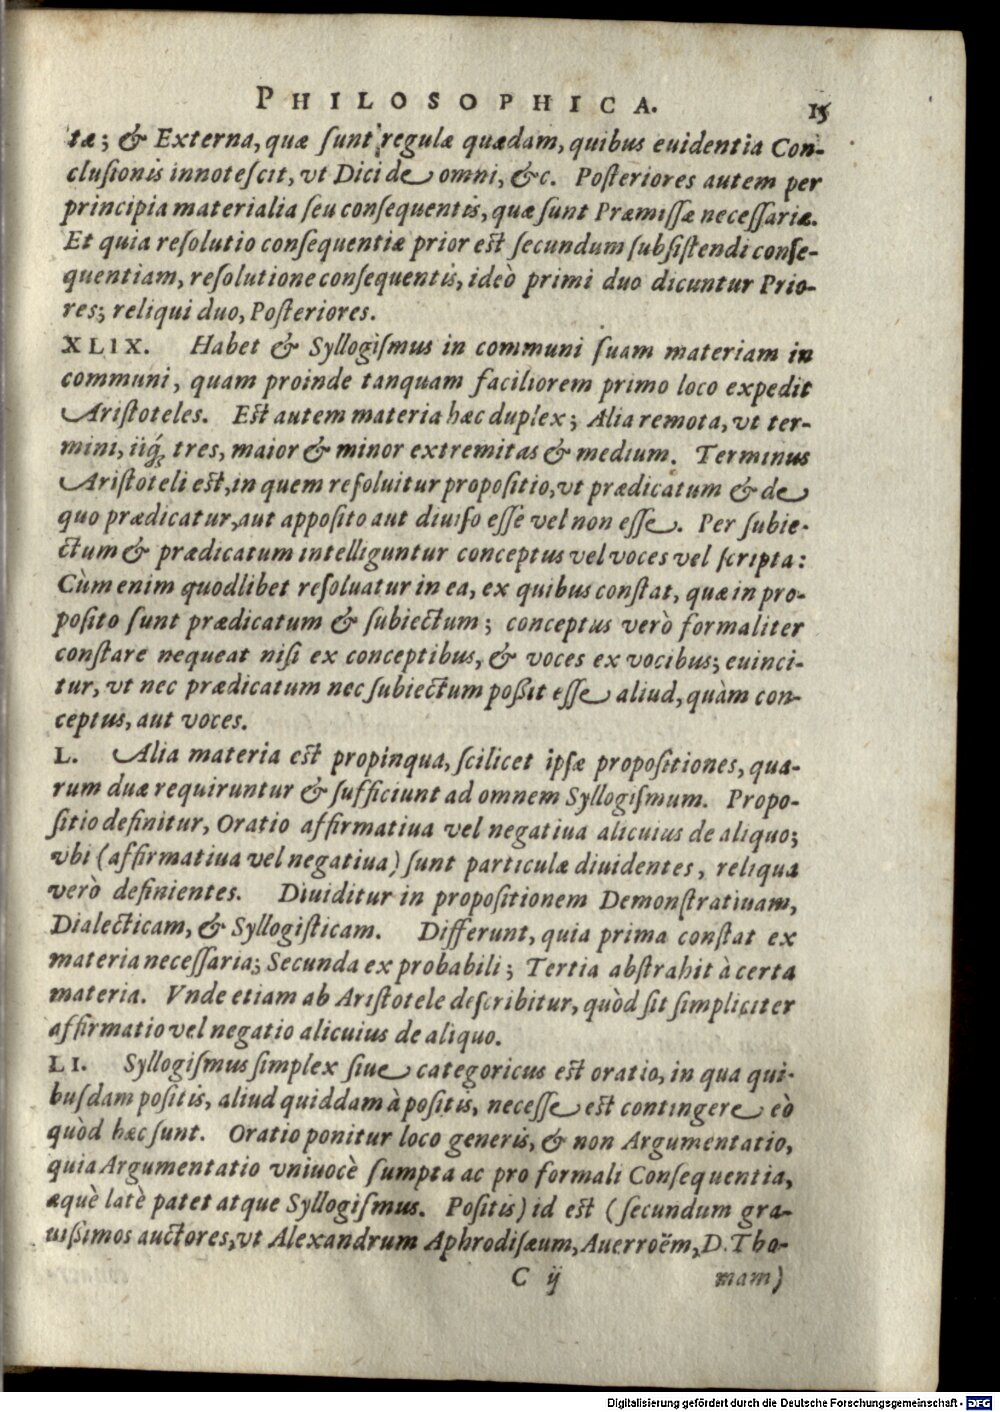 PHILOSOPHICA. 15
tæ; & Externa, quæ ſunt regulæ quædam, quibus euidentia Con-
cluſionis innoteſcit, vt Dici de omni, &c. Poſteriores autem per
principia materialia ſeu conſequentis, quæ ſunt Præmiſſæ neceſſariæ.
Et quia reſolutio conſequentiæ prior eſt ſecundum ſubſiſtendi conſe-
quentiam, reſolutione conſequentis, ideò primi duo dicuntur Prio-
res; reliqui duo, Poſteriores.
XLIX. Habet & Syllogiſmus in communi ſuam materiam in
communi, quam proinde tanquam faciliorem primo loco expedit
Ariſtoteles. Eſt autem materia hæc duplex; Alia remota, vt ter-
mini, iiq́; tres, maior & minor extremitas & medium. Terminus
Ariſtoteli eſt, in quem reſoluitur propoſitio, vt prædicatum & de
quo prædicatur, aut appoſito aut diuiſo eſſe vel non eſſe. Per ſubie-
ctum & prædicatum intelliguntur conceptus vel voces vel ſcripta:
Cùm enim quodlibet reſoluatur in ea, ex quibus conſtat, quæ in pro-
poſito ſunt prædicatum & ſubiectum; conceptus verò formaliter
conſtare nequeat niſi ex conceptibus, & voces ex vocibus; euinci-
tur, vt nec prædicatum nec ſubiectum poßit eſſe aliud, quàm con-
ceptus, aut voces.
L. Alia materia eſt propinqua, ſcilicet ipſæ propoſitiones, qua-
rum duæ requiruntur & ſufficiunt ad omnem Syllogiſmum. Propo-
ſitio definitur, Oratio affirmatiua vel negatiua alicuius de aliquo;
vbi (affirmatiua vel negatiua) ſunt particulæ diuidentes, reliqua
verò definientes. Diuiditur in propoſitionem Demonſtratiuam,
Dialecticam, & Syllogiſticam. Differunt, quia prima conſtat ex
materia neceſſaria; Secunda ex probabili; Tertia abſtrahit à certa
materia. Vnde etiam ab Ariſtotele deſcribitur, quòd ſit ſimpliciter
affirmatio vel negatio alicuius de aliquo.
LI. Syllogiſmus ſimplex ſiue categoricus eſt oratio, in qua qui-
buſdam poſitis, aliud quiddam à poſitis, neceſſe eſt contingere eò
quòd hæc ſunt. Oratio ponitur loco generis, & non Argumentatio,
quia Argumentatio vniuocè ſumpta ac pro formali Conſequentia,
æquè latè patet atque Syllogiſmus. Poſitis) id eſt (ſecundum gra-
uißimos auctores, vt Alexandrum Aphrodiſæum, Auerroëm, D. Tho-
C ij mam)
Digitalisierung gefördert durch die Deutsche Forschungsgemeinschaft - DFG